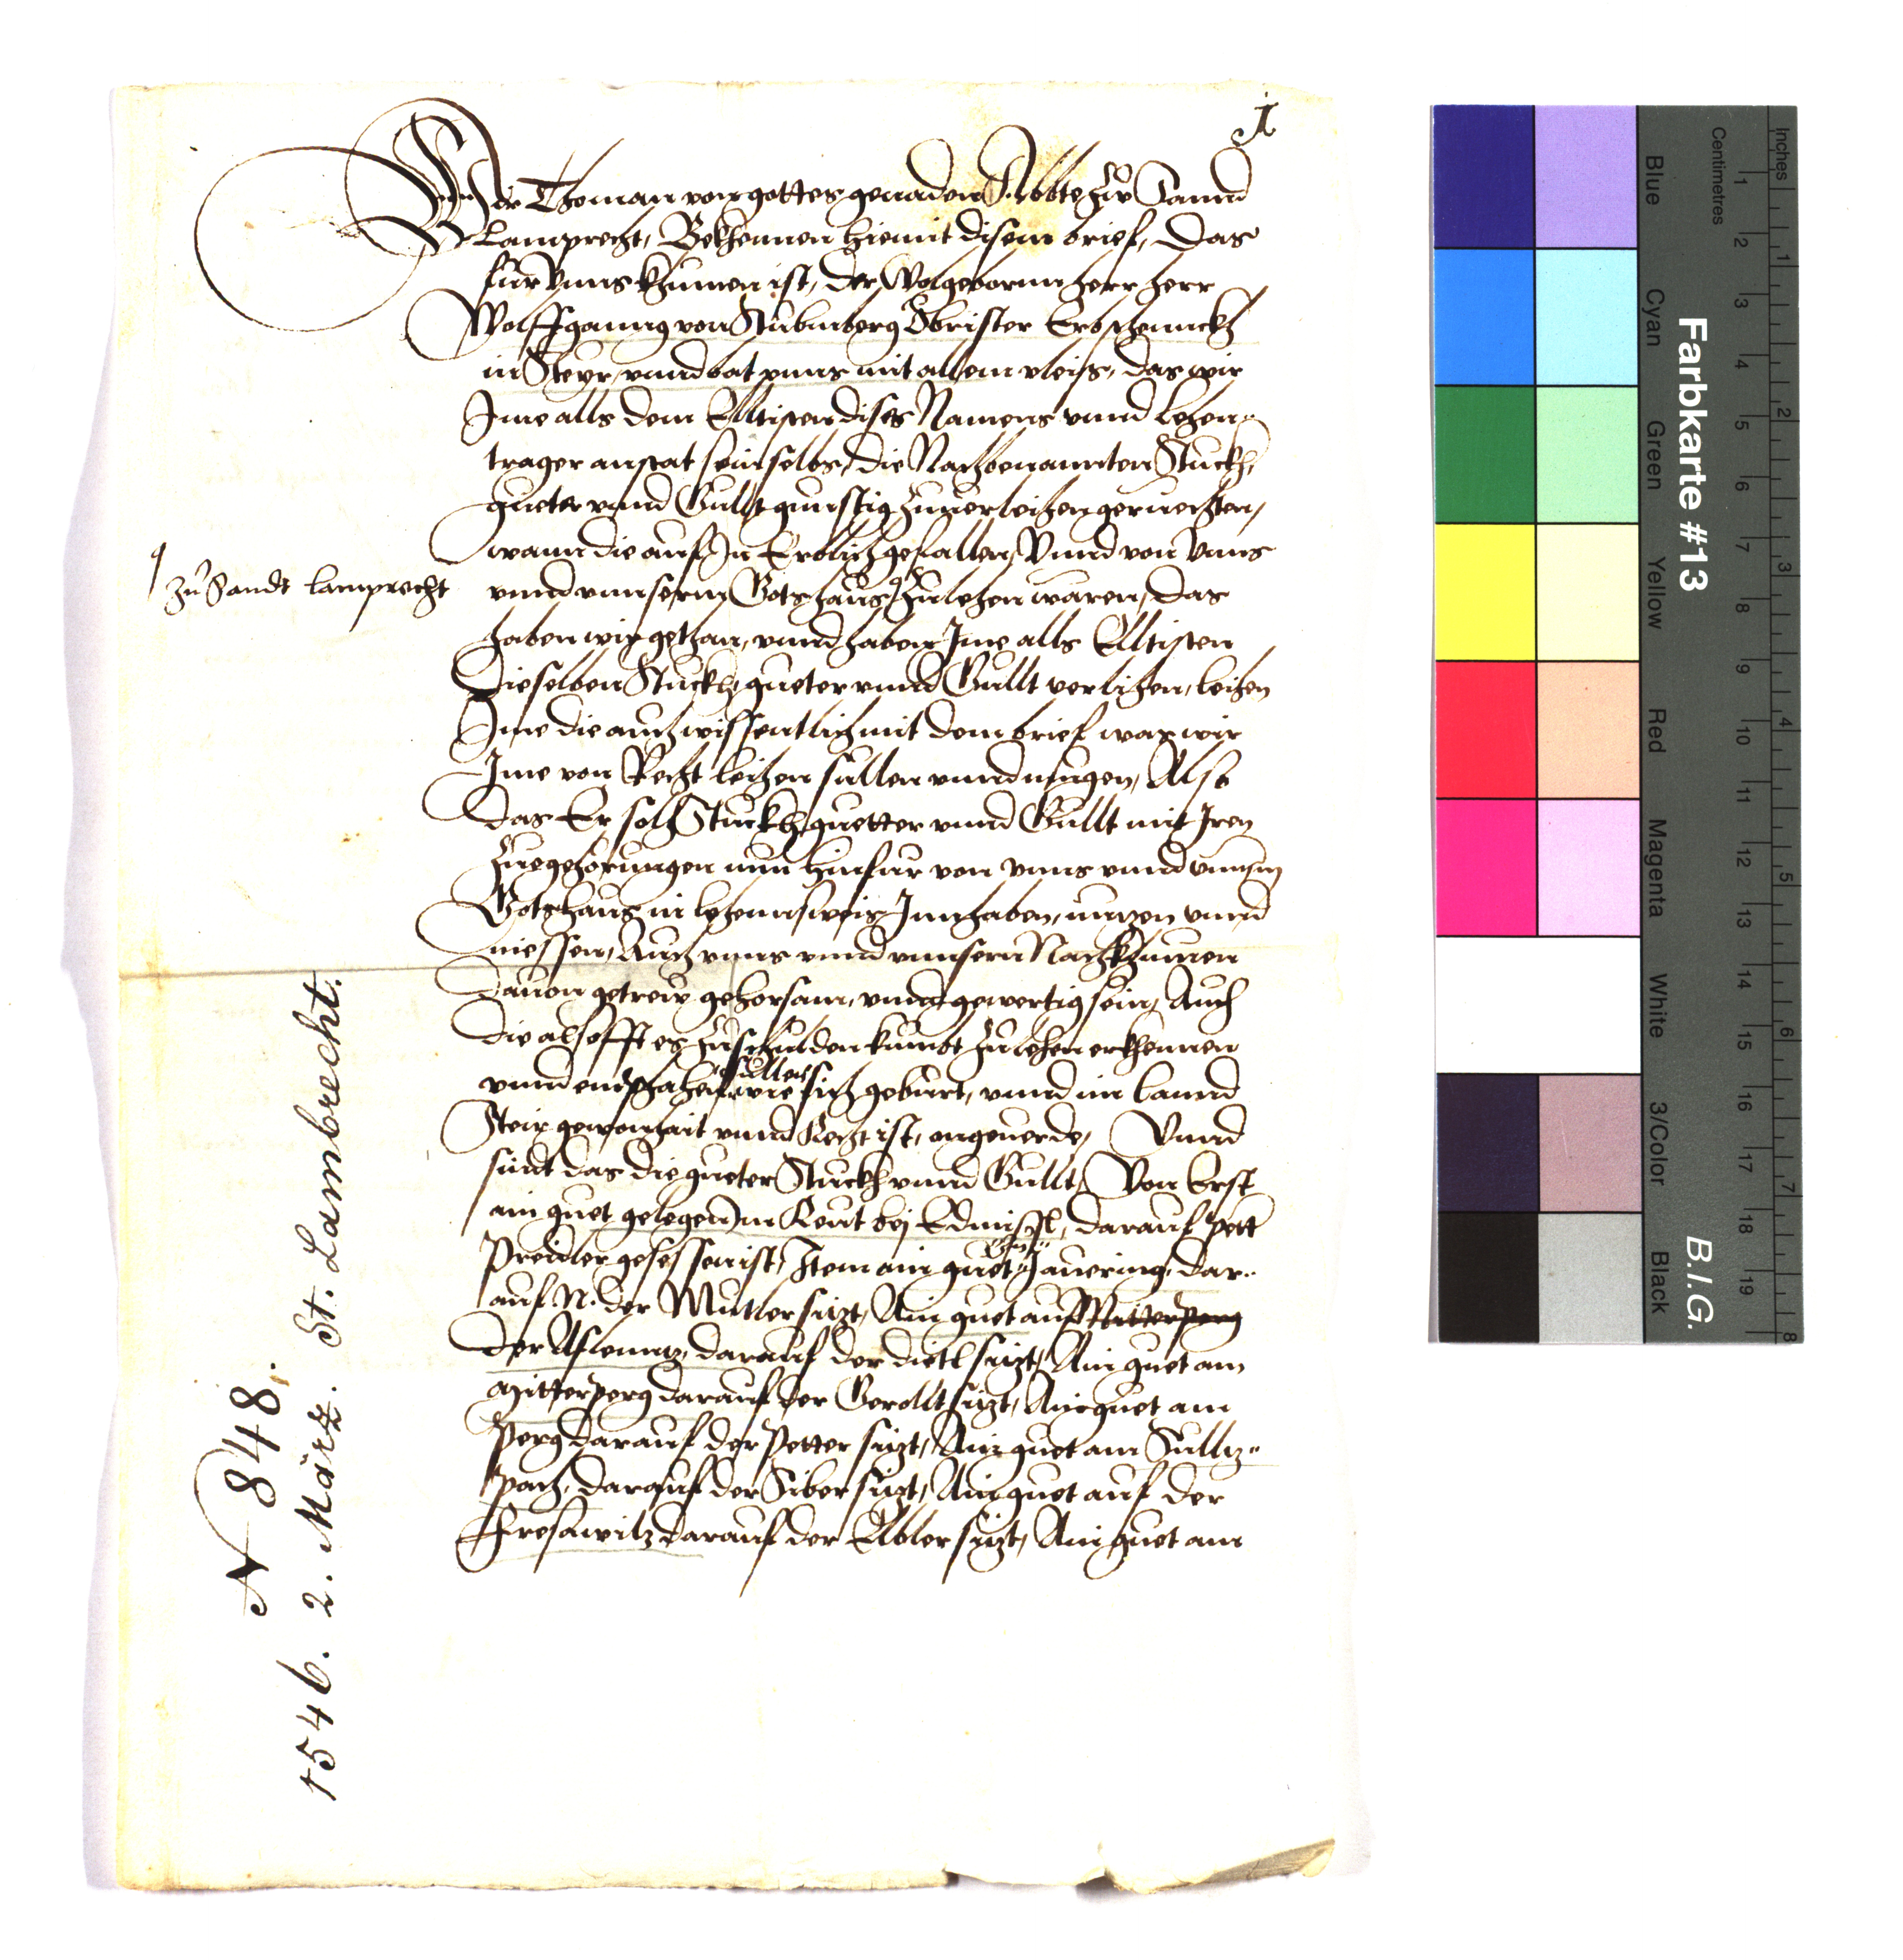 1
Wir Thoman von gottes genaden Abbte zu Sannd
Lamprecht, Bekhennen hiemit disem brief, Das
fur Vnns khumen ist, der Wolgeborn herr herr
Wolffganng von Stubmberg Obrister Erbschennckh
in Steyr, vnnd bat vnns mit allem vleis, das wir
Ime alls dem Elltisten dises Namens vnnd lehen„
trager anstat sein selbs, die Nachbenannten Stuckh,
gueter vnnd Gullt gunstig zuuerleihen geruechten,
wann die auf In Erblich gefallen, Vnnd von Vnns
vnnd vnnserm Gotshaus zulehen waren, das
zu Sandt lamprecht
haben wir gethan, vnnd haben Ime alls Elltisten
Dieselben Stuckh, gueter vnnd Gullt verlihen, leihen
Ime die auch wissentlich mit dem brief was wir
Ime von Recht leihen sullen vnnd mugen, Also
das Er solh Stuckh, guetter vnnd Gullt mit Iren
Zuegehorungen nun hinfur von vnns vnnd vnnserm
Gotshaus in lehennsweis Innhaben, nuzen vnnd
niessen, Auch vnns vnnd vnnsern Nachkhumen
Dauon getrew gehorsam, vnnd gewertig sein, Auch
die als offt es zuschulden kumbt zulehen erkhennen
vnnd emphahen sullen wie sich geburt, vnnd im lannd
Steir gewonhait vnnd Recht ist, ongeuerde, Vnnd
sindt das die gueter Stuckh vnnd Gullt, Von Erst
ain guet gelegen in Reut bej, darauf Pett
Preidler gesessen ist, Item ain guet Jauering, dar„
auf N. der Mutler sizt, Ain guet auf Mitterperg
der Aflenntz, darauf der dietl sizt, Ain guet am
Mitterperg darauf der Gerollt sizt, Ain guet am
Perg darauf der Petter sizt, Ain guet am Sullz„
pach, darauf der Siber sizt, Ain guet auf der
Fresawitz darauf der Abler sizt, Ain guet am
N 848.
1546. 2. März. St. Lambrecht.
Farbkarte #13
B.I.G.
Blue
Cyan
Green
Yellow
Red
Magenta
White
3/Color
Black
Centimetres
1 2 3 4 5 6 7 8 9 10 11 12 13 14 15 16 17 18 19
Inches
1 2 3 4 5 6 7 8